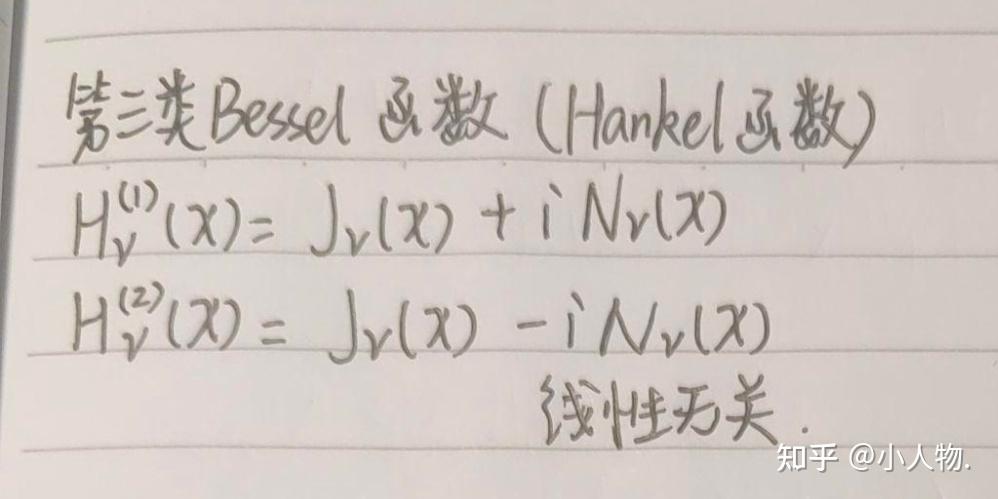 第三类Bessel 函数 (Hankel 函数)
H_ν^(1)(x) = J_ν(x) + i N_ν(x)
H_ν^(2)(x) = J_ν(x) - i N_ν(x)
线性无关.
知乎 @小人物.